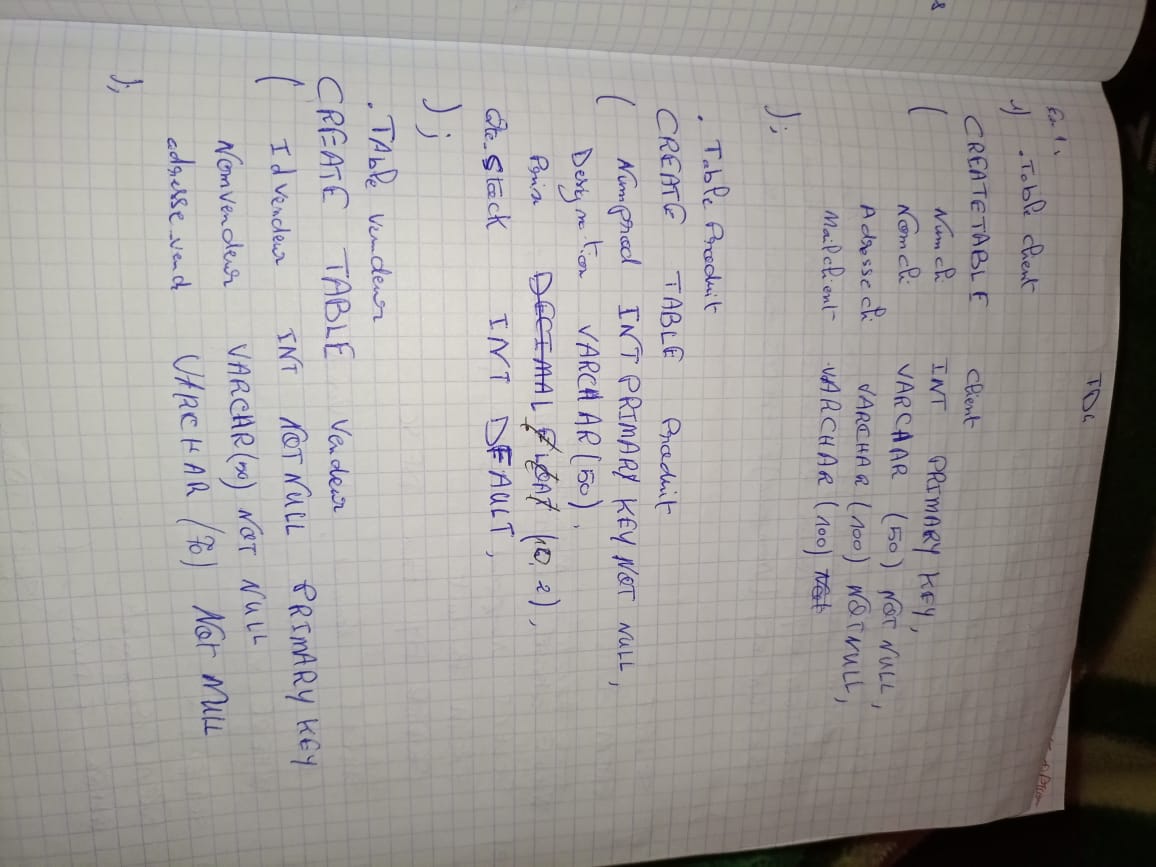 TD4
Ex 1.
1) . Table client
CREATETABLE client
( Numcli INT PRIMARY KEY,
Nomcli VARCHAR (50) NOT NULL,
Adresse cli VARCHAR (100) NOT NULL,
Mailclient VARCHAR (100) Not
);
. Table Produit
CREATE TABLE Produit
( Numprod INT PRIMARY KEY NOT NULL,
Designation VARCHAR (50),
Prix DECIMAL FLOAT (10, 2),
Qte_Stock INT DEFAULT,
);
. TAble vendeur
CREATE TABLE Vendeur
( Id vendeur INT NOT NULL PRIMARY KEY
Nomvendeur VARCHAR(50) NOT NULL
adresse_vend VARCHAR (70) Not NULL
);